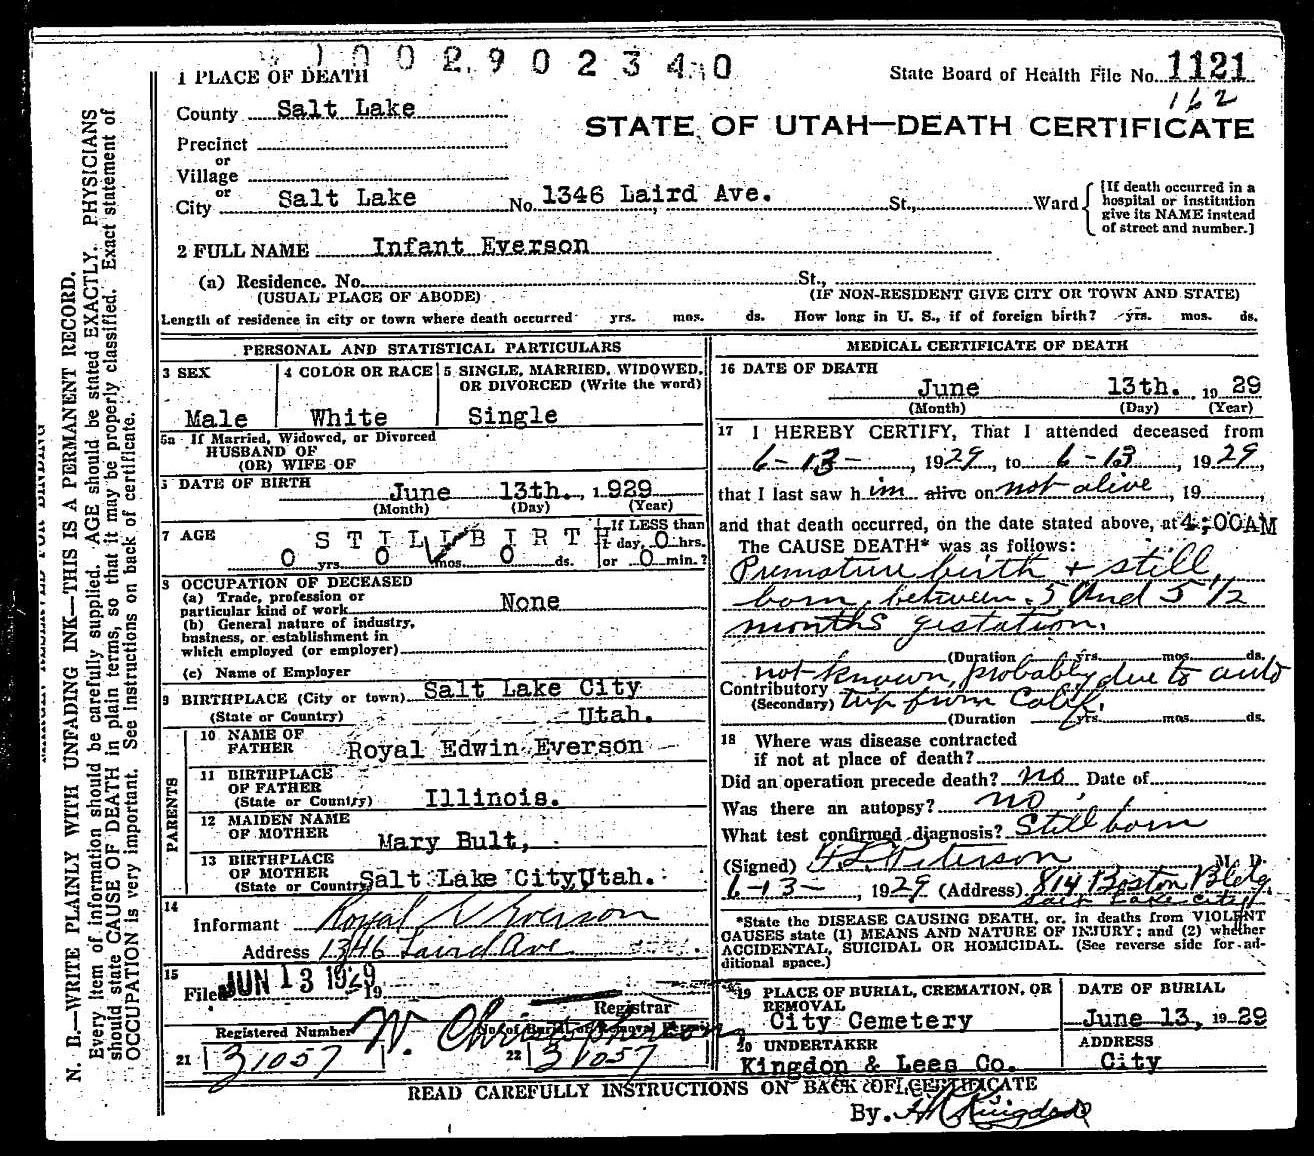 1002902340
1 PLACE OF DEATH
State Board of Health File No. 1121
162
County Salt Lake
STATE OF UTAH—DEATH CERTIFICATE
Precinct
or
Village
or
City Salt Lake No. 1346 Laird Ave. St., Ward
[If death occurred in a hospital or institution give its NAME instead of street and number.]
2 FULL NAME Infant Everson
(a) Residence. No. St.,
(USUAL PLACE OF ABODE) (IF NON-RESIDENT GIVE CITY OR TOWN AND STATE)
Length of residence in city or town where death occurred yrs. mos. ds. How long in U. S., if of foreign birth? yrs. mos. ds.
PERSONAL AND STATISTICAL PARTICULARS
3 SEX
Male
4 COLOR OR RACE
White
5 SINGLE, MARRIED, WIDOWED, OR DIVORCED (Write the word)
Single
5a If Married, Widowed, or Divorced
HUSBAND OF
(OR) WIFE OF
DATE OF BIRTH
June 13th., 1929
(Month) (Day) (Year)
7 AGE
STILLBIRTH
0 yrs. 0 mos. 0 ds.
If LESS than
1 day, 0 hrs.
or 0 min.?
8 OCCUPATION OF DECEASED
(a) Trade, profession or
particular kind of work None
(b) General nature of industry,
business, or establishment in
which employed (or employer)
(c) Name of Employer
9 BIRTHPLACE (City or town) Salt Lake City
(State or Country) Utah.
PARENTS
10 NAME OF
FATHER Royal Edwin Everson
11 BIRTHPLACE
OF FATHER
(State or Country) Illinois.
12 MAIDEN NAME
OF MOTHER Mary Bult,
13 BIRTHPLACE
OF MOTHER
(State or Country) Salt Lake City Utah.
14
Informant Royal Everson
Address 1346 Laird Ave
15
Filed JUN 13 1929 19
Registrar
W. Christopherson
Registered Number
No. of Burial or Removal Permit
21 31057 22 31057
MEDICAL CERTIFICATE OF DEATH
16 DATE OF DEATH
June 13th. 1929
(Month) (Day) (Year)
17 I HEREBY CERTIFY, That I attended deceased from
6-13-, 1929, to 6-13, 1929,
that I last saw him alive on not alive, 19
and that death occurred, on the date stated above, at 4:00AM
The CAUSE DEATH* was as follows:
Premature birth + still
born, between 5 and 5 1/2
months gestation.
(Duration yrs. mos. ds.
not known, probably due to auto
Contributory
(Secondary) trip from Calif.
(Duration yrs. mos. ds.
18 Where was disease contracted
if not at place of death?
Did an operation precede death? no Date of
Was there an autopsy? no
What test confirmed diagnosis? Still born
(Signed) Peterson, M. D.
6-13-, 1929 (Address) 814 Boston Bldg.
Salt Lake City
*State the DISEASE CAUSING DEATH, or, in deaths from VIOLENT
CAUSES state (1) MEANS AND NATURE OF INJURY; and (2) whether
ACCIDENTAL, SUICIDAL OR HOMICIDAL. (See reverse side for ad-
ditional space.)
19 PLACE OF BURIAL, CREMATION, OR REMOVAL
City Cemetery
DATE OF BURIAL
June 13, 1929
20 UNDERTAKER
Kingdon & Lees Co.
ADDRESS
City
READ CAREFULLY INSTRUCTIONS ON BACK OF CERTIFICATE
By.
N. B.—WRITE PLAINLY WITH UNFADING INK—THIS IS A PERMANENT RECORD.
Every item of information should be carefully supplied. AGE should be stated EXACTLY. PHYSICIANS
should state CAUSE OF DEATH in plain terms, so that it may be properly classified. Exact statement of
OCCUPATION is very important. See instructions on back of certificate.